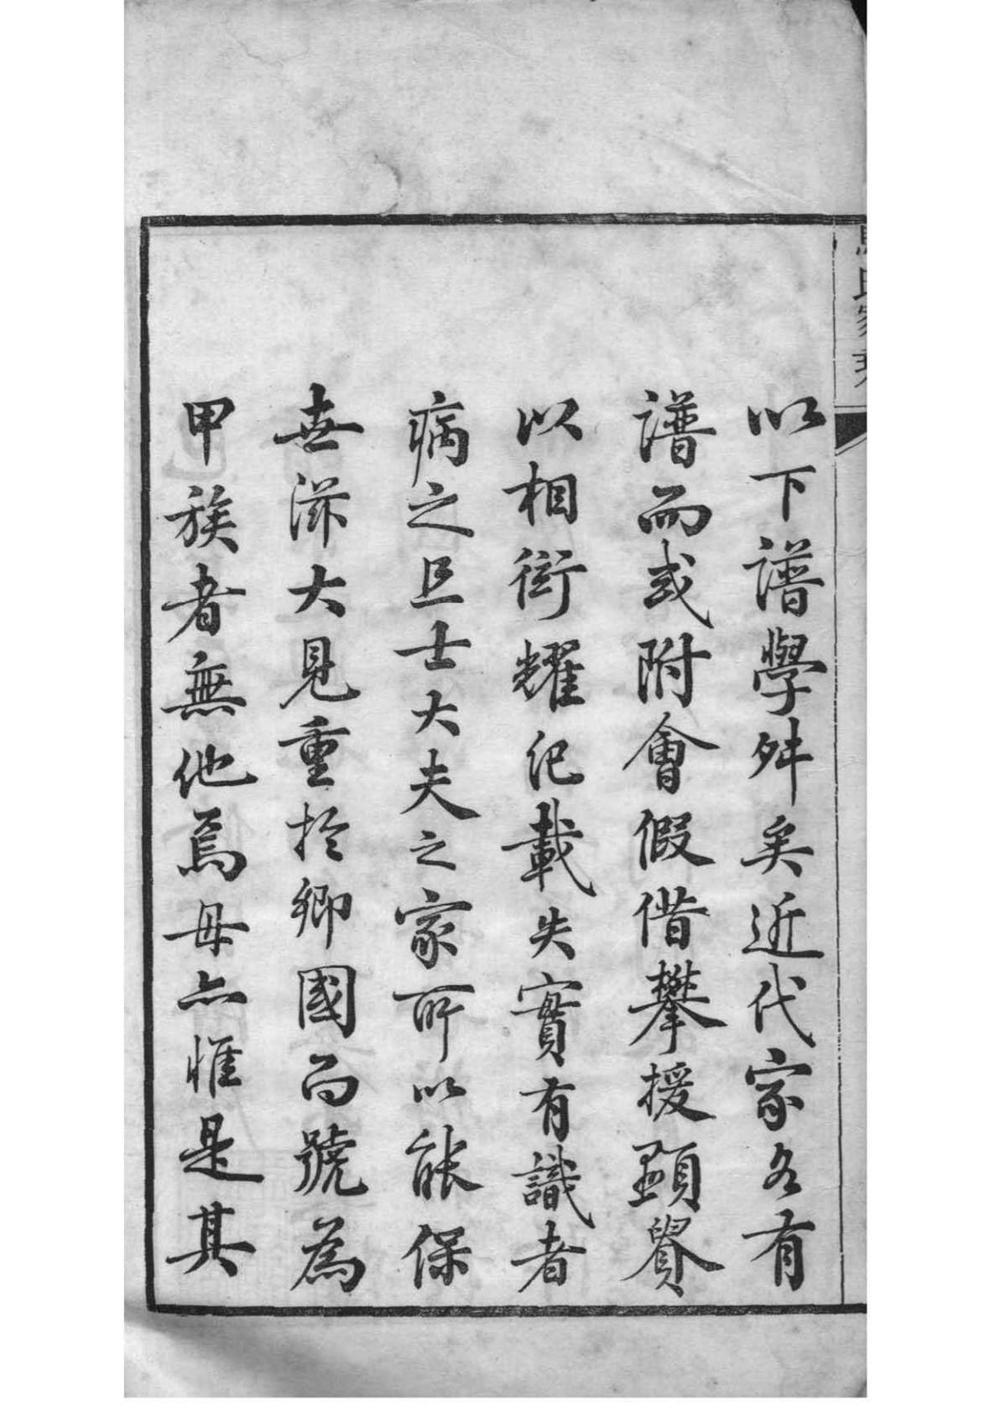 以下譜學舛矣近代家各有
譜而或附會假借攀援顯貴
以相衒耀記載失實有識者
病之且士大夫之家所以能保
世滋大見重於鄉國而號為
甲族者無他焉毋亦惟是其